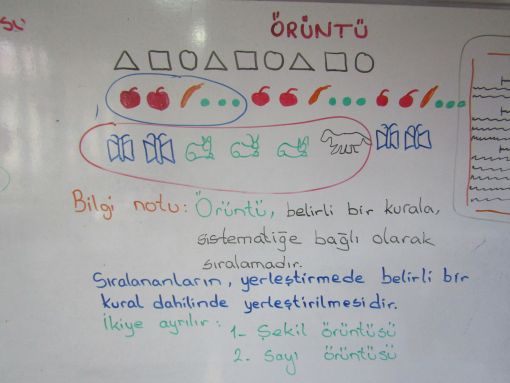 ÖRÜNTÜ
Bilgi notu: Örüntü, belirli bir kurala,
sistematiğe bağlı olarak
sıralamadır.
Sıralananların, yerleştirmede belirli bir
kural dahilinde yerleştirilmesidir.
İkiye ayrılır: 1- Şekil örüntüsü
2. Sayı örüntüsü